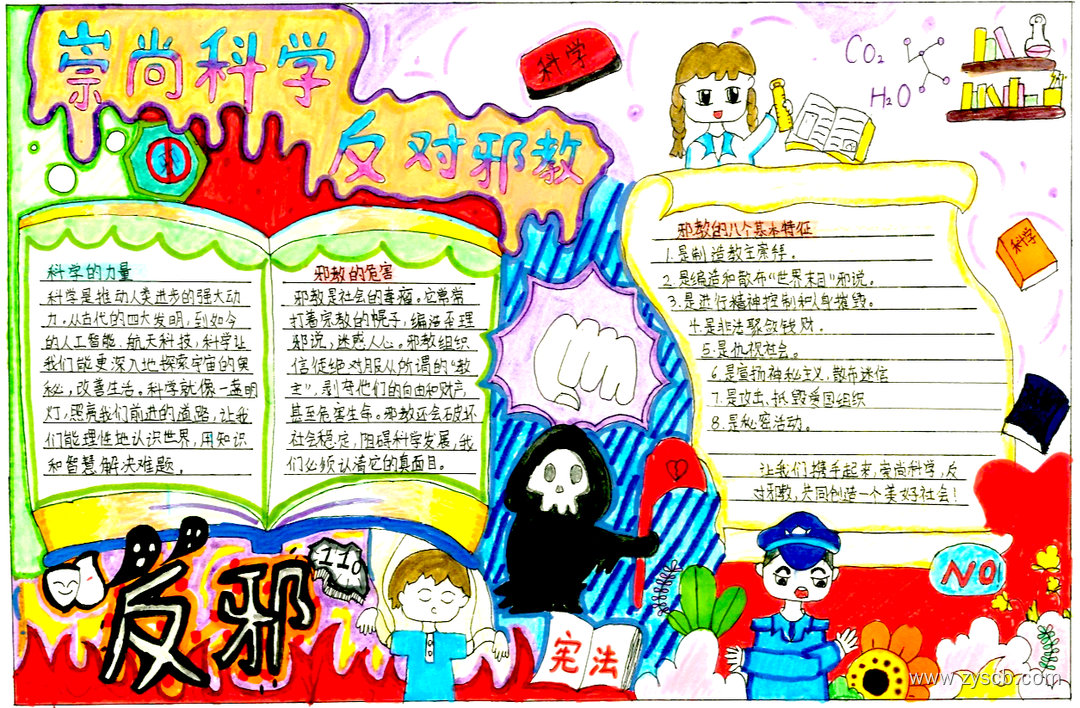 崇尚科学
反对邪教
科学
CO₂
H₂O
科学的力量
科学是推动人类进步的强大动
力。从古代的四大发明,到如今
的人工智能、航天科技,科学让
我们能更深入地探索宇宙的奥
秘,改善生活。科学就像一盏明
灯,照亮我们前进的道路,让我
们能理性地认识世界,用知识
和智慧解决难题。
邪教的危害
邪教是社会的毒瘤。它常常
打着宗教的幌子,编造歪理
邪说,迷惑人心。邪教组织
信徒绝对服从所谓的“教
主”,剥夺他们的自由和财产,
甚至危害生命。邪教还会破坏
社会稳定,阻碍科学发展,我
们必须认清它的真面目。
邪教的八个基本特征
1.是制造教主崇拜。
2.是编造和散布“世界末日”邪说。
3.是进行精神控制和人身摧毁。
4.是非法聚敛钱财.
5.是仇视社会。
6.是宣扬神秘主义,散布迷信
7.是攻击、抵毁爱国组织
8.是秘密活动。
让我们携手起来,崇尚科学,反
对邪教,共同创造一个美好社会!
科学
反邪
110
宪法
NO
www.zyscb.com